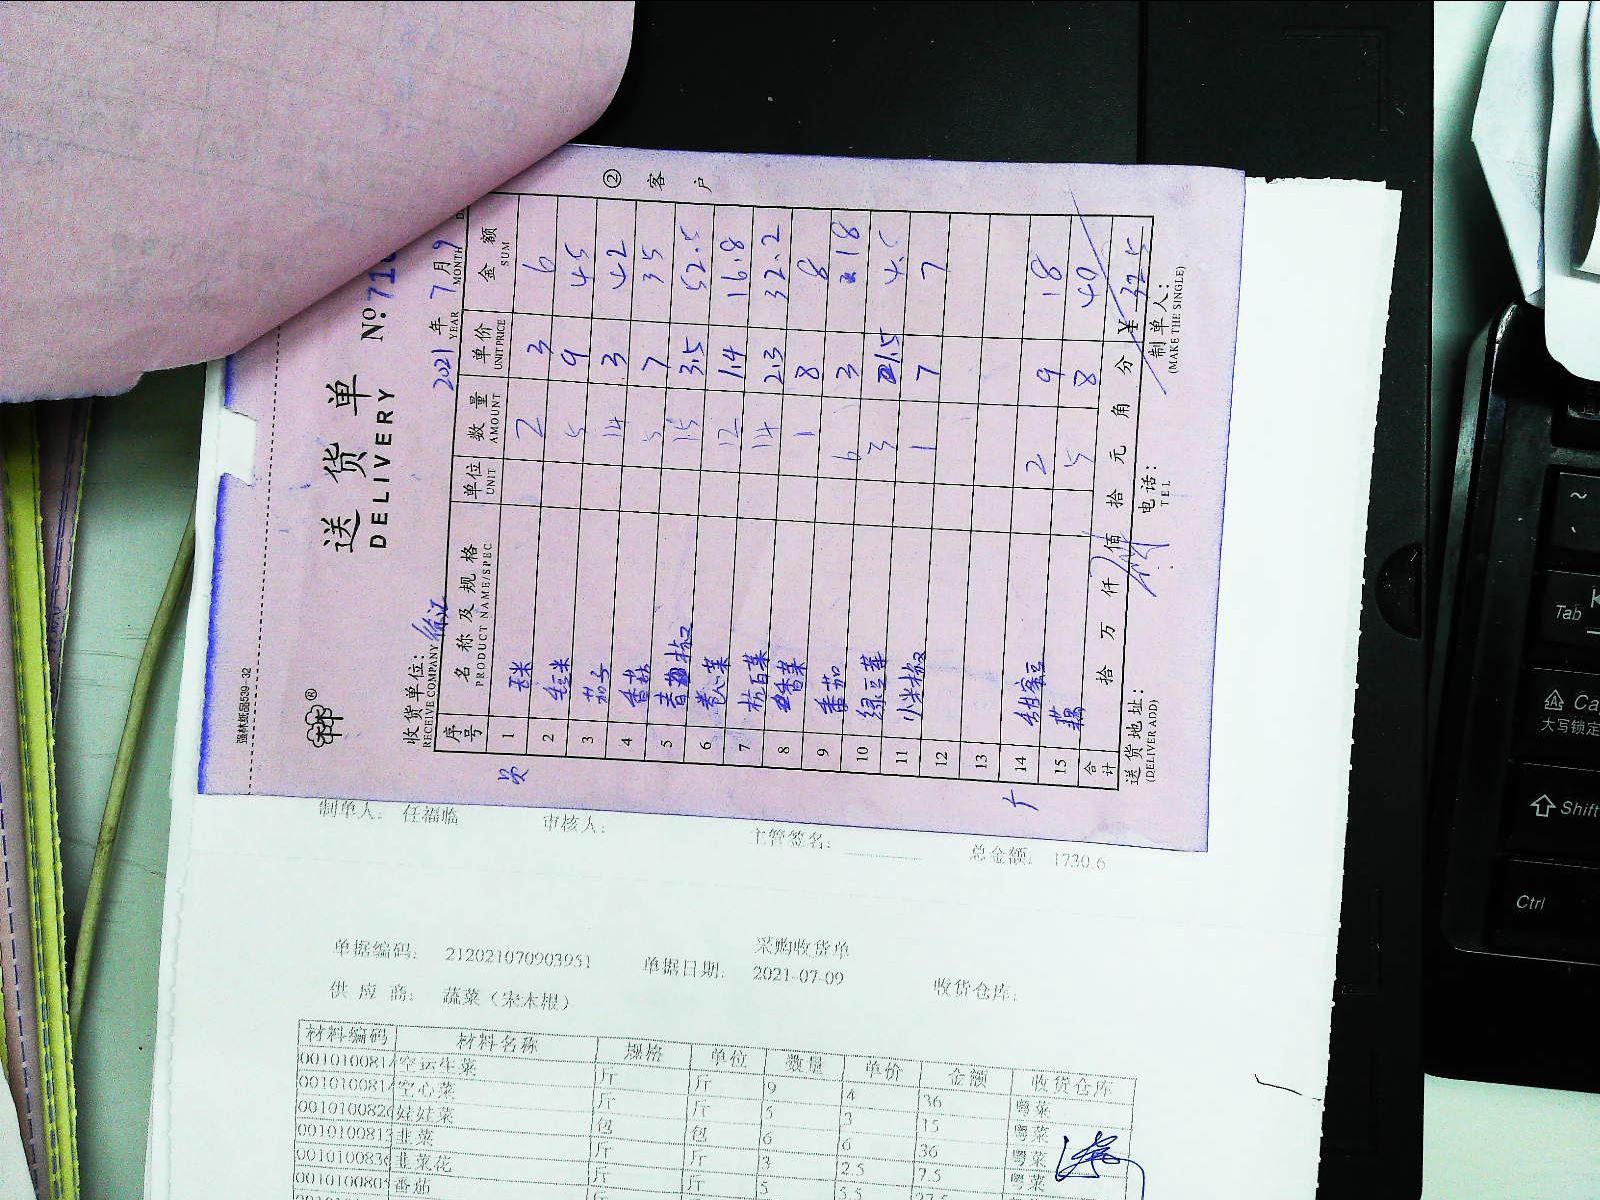 强林纸品539-32
送货单
DELIVERY
No. 71
收货单位: 徐汇 2021年 7月 9
RECEIVE COMPANY YEAR MONTH
序号 名称及规格 单位 数量 单价 金额
PRODUCT NAME/SPEC UNIT AMOUNT UNIT PRICE SUM
1 玉米 2 3 6
2 毛豆米 5 9 45
3 茄子 14 3 42
4 香菇 5 7 35
5 青椒 15 3.5 52.5
6 卷心菜 12 1.4 16.8
7 杭白菜 14 2.3 32.2
8 香菜 1 8 8
9 番茄 6 3 18
10 绿豆芽 3 1.5 4.5
11 小米椒 1 7 7
12
13
14 甜蜜豆 2 9 18
15 藕 5 8 40
合计 拾 万 仟 佰 拾 元 角 分 ¥ 325
送货地址: 电话: 制单人:
(DELIVER ADD) TEL (MAKE THE SINGLE)
② 客户
制单人: 任福临 审核人: 主管签名: 总金额: 1730.6
采购收货单
单据编码: 212021070903951 单据日期: 2021-07-09 收货仓库:
供应商: 蔬菜(宋本根)
材料编码 材料名称 规格 单位 数量 单价 金额 收货仓库
001010081 空运生菜 斤 斤 9 4 36 粤菜
001010081 空心菜 斤 斤 5 3 15 粤菜
001010082 娃娃菜 包 包 6 6 36 粤菜
001010081 韭菜 斤 斤 3 2.5 7.5 粤菜
001010083 韭菜花 斤 斤 5 5.5 27.5
001010080 番茄
~
Tab
Ca
大写锁定
Shift
Ctrl